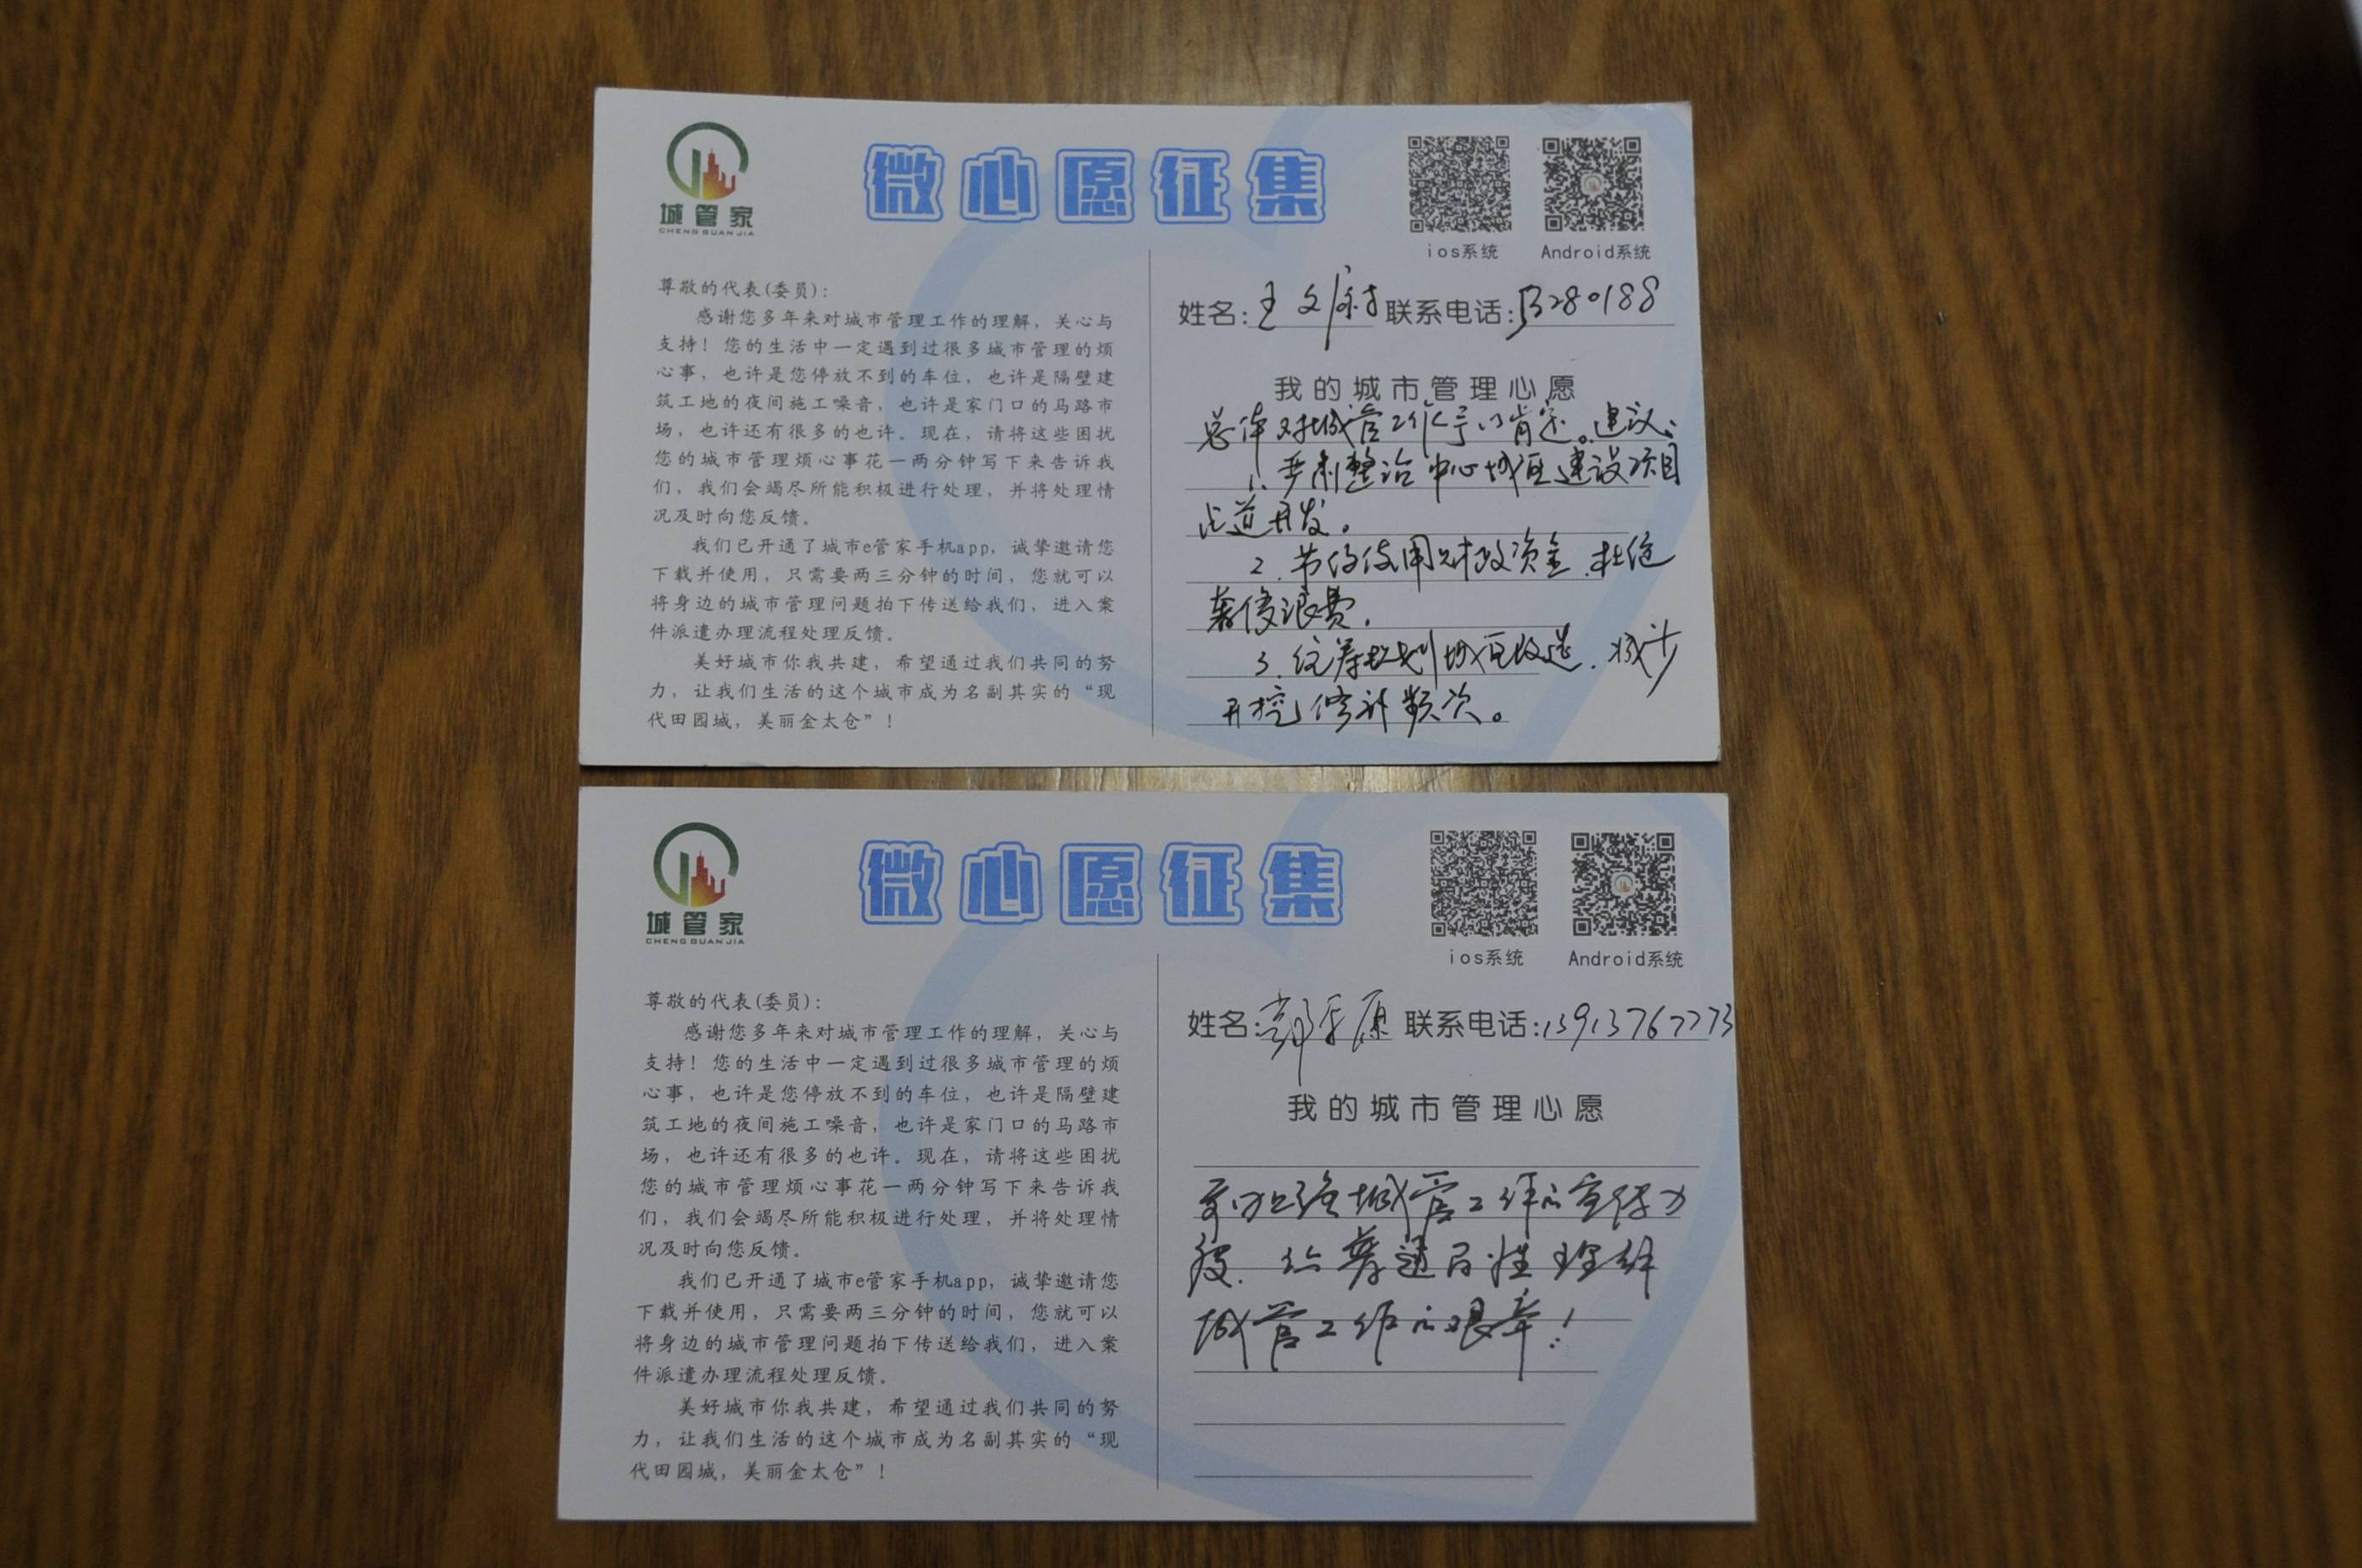 城管家
CHENG GUAN JIA
微心愿征集
ios系统
Android系统
尊敬的代表(委员)：
感谢您多年来对城市管理工作的理解，关心与
支持！您的生活中一定遇到过很多城市管理的烦
心事，也许是您停放不到的车位，也许是隔壁建
筑工地的夜间施工噪音，也许是家门口的马路市
场，也许还有很多的也许。现在，请将这些困扰
您的城市管理烦心事花一两分钟写下来告诉我
们，我们会竭尽所能积极进行处理，并将处理情
况及时向您反馈。
我们已开通了城市e管家手机app，诚挚邀请您
下载并使用，只需要两三分钟的时间，您就可以
将身边的城市管理问题拍下传送给我们，进入案
件派遣办理流程处理反馈。
美好城市你我共建，希望通过我们共同的努
力，让我们生活的这个城市成为名副其实的“现
代田园城，美丽金太仓”！
姓名：王文 联系电话：53280188
我的城市管理心愿
总体对城管工作予以肯定。建议：
1. 严肃整治中心城区建设项目
占道开发。
2. 节约使用财政资金，杜绝
奢侈浪费。
3. 统筹规划城区改造，减少
开挖修补频次。
城管家
CHENG GUAN JIA
微心愿征集
ios系统
Android系统
尊敬的代表(委员)：
感谢您多年来对城市管理工作的理解，关心与
支持！您的生活中一定遇到过很多城市管理的烦
心事，也许是您停放不到的车位，也许是隔壁建
筑工地的夜间施工噪音，也许是家门口的马路市
场，也许还有很多的也许。现在，请将这些困扰
您的城市管理烦心事花一两分钟写下来告诉我
们，我们会竭尽所能积极进行处理，并将处理情
况及时向您反馈。
我们已开通了城市e管家手机app，诚挚邀请您
下载并使用，只需要两三分钟的时间，您就可以
将身边的城市管理问题拍下传送给我们，进入案
件派遣办理流程处理反馈。
美好城市你我共建，希望通过我们共同的努
力，让我们生活的这个城市成为名副其实的“现
代田园城，美丽金太仓”！
姓名：平原 联系电话：13913767773
我的城市管理心愿
要加强城管工作的宣传力
度，让普通百姓理解
城管工作的艰辛！